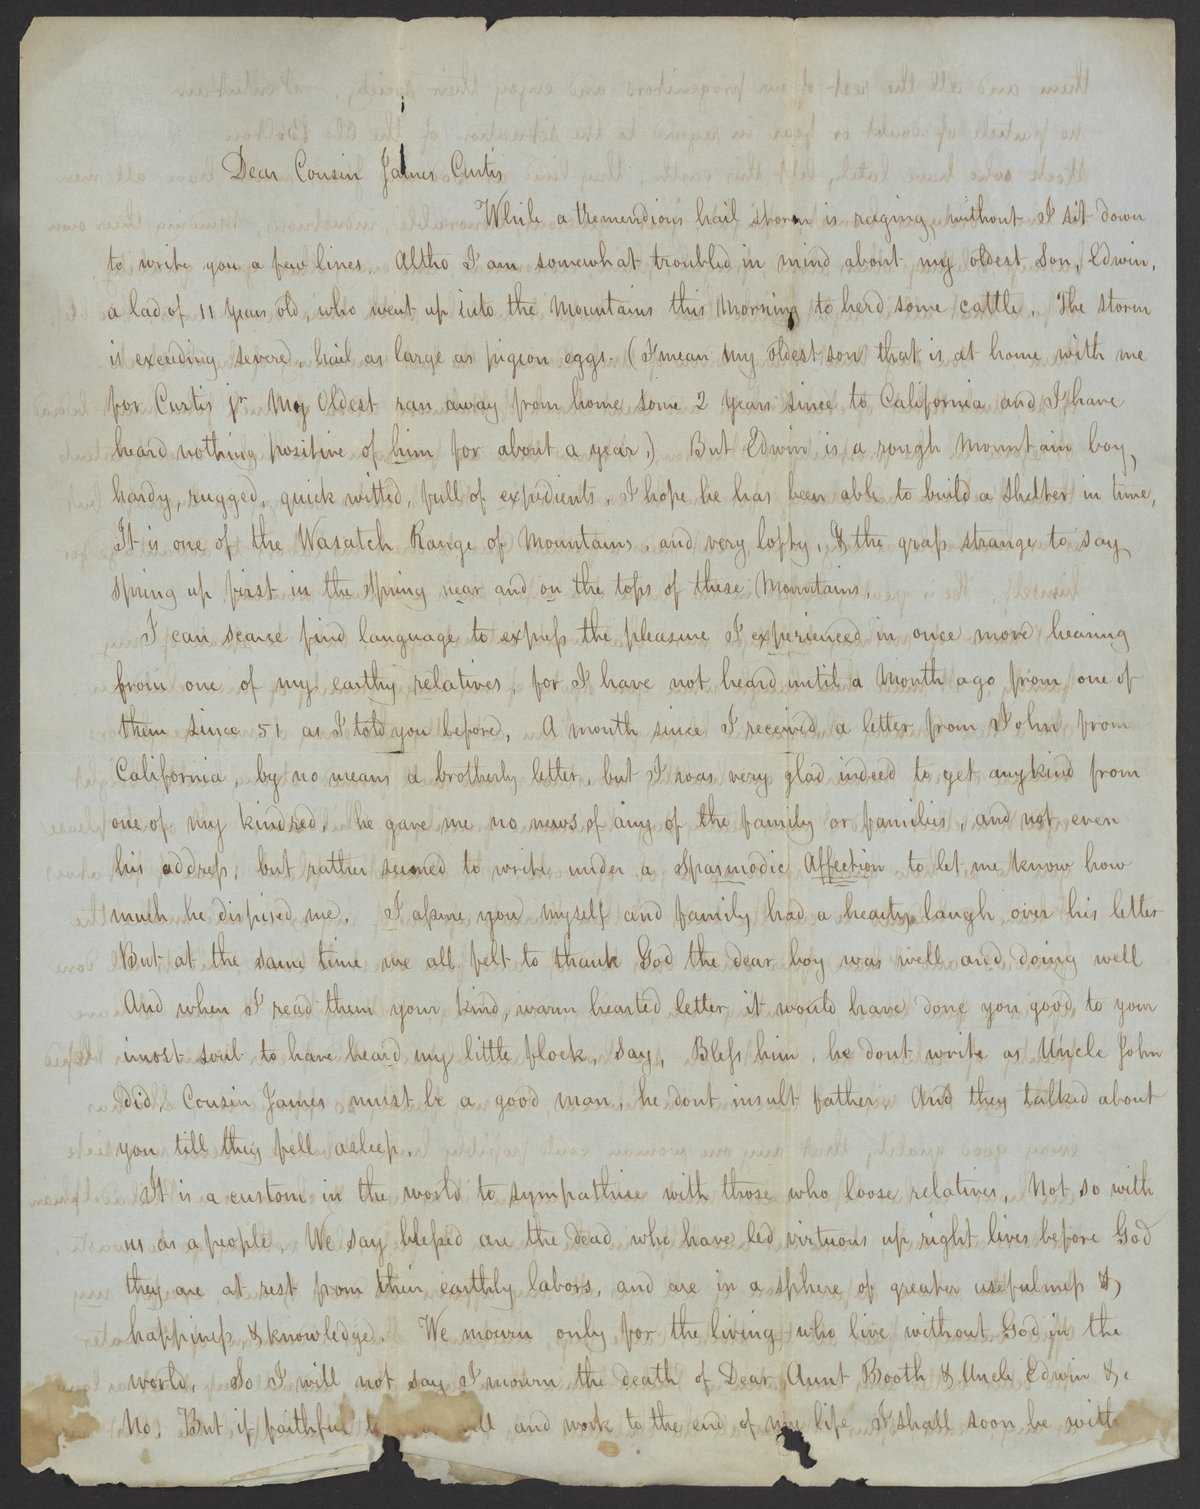 Dear Cousin James Curtis
While a tremendious hail storm is raging, without I sit down
to write you a few lines. Altho I am somewhat troubled in mind about my oldest Son, Edwin,
a lad of 11 years old, who went up into the Mountains this Morning to herd some cattle. The storm
is exceeding severe, hail as large as pigeon eggs. (I mean my oldest son that is at home with me
for Curtis jr. My Oldest ran away from home some 2 years since to California and I have
heard nothing positive of him for about a year.) But Edwin is a rough Mountain boy,
hardy, rugged, quick witted, full of expedients, I hope he has been able to build a shelter in time,
It is one of the Wasatch Range of Mountains, and very lofty, & the grass strange to say
spring up first in the spring near and on the tops of these Mountains
I can scarce find language to express the pleasure I experienced in once more hearing
from one of my earthy relatives, for I have not heard until a Month ago from one of
them since 51 as I told you before, A month since I received a letter from John from
California, by no means a brotherly letter, but I was very glad indeed to get any kind from
one of my kindred, he gave me no news of any of the family or families, and not even
his address, but rather seemed to write under a Spasmodic Affection to let me know how
much he dispised me. I assure you myself and family had a hearty laugh over his letter
But at the same time we all felt to thank God the dear boy was well and doing well
And when I read them your kind, warm hearted letter it would have done you good, to your
inost soul to have heard my little flock, say, Bless him, he dont write as Uncle John
did, Cousin James must be a good man, he dont insult father, And they talked about
you till they fell asleep.
It is a custom in the world to sympathise with those who loose relatives, Not so with
us as a people. We say blessed are the dead who have led virtuous up right lives before God
they are at rest from their earthly labors, and are in a sphere of greater usefulness &
happiness & knowledge. We mourn only for the living who live without God in the
world, So I will not say I mourn the death of Dear Aunt Booth & Uncle Edwin &c
No, But if faithful and work to the end of my life I shall soon be with